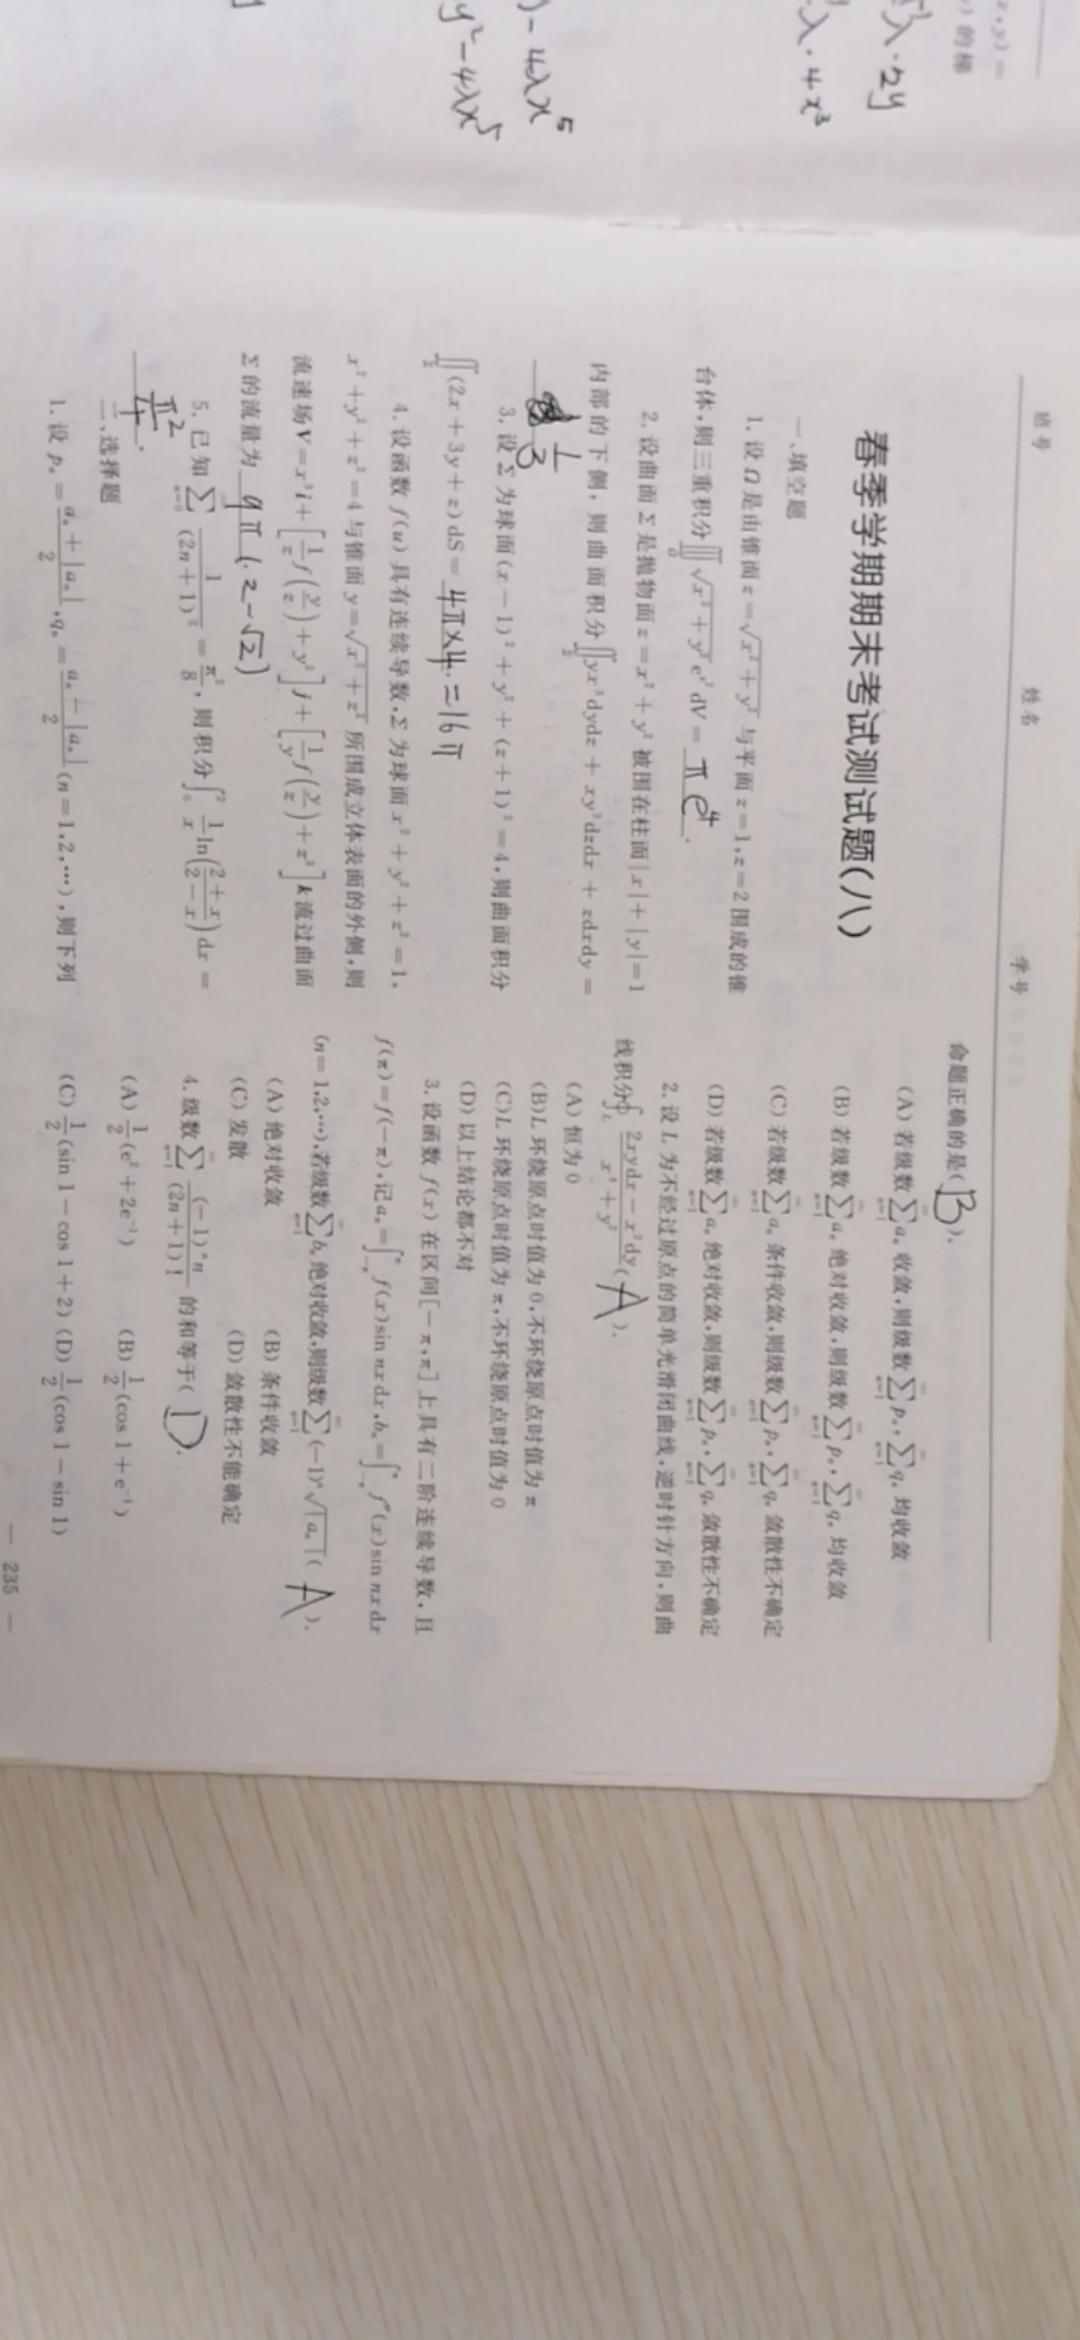 x,y)=
y)的梯
λ·2y
λ·4x³
)-4λx⁵
y²-4λx⁵
班号 姓名 学号
春季学期期末考试测试题(八)
一、填空题
1. 设Ω是由锥面z=√(x²+y²)与平面z=1,z=2围成的锥
台体,则三重积分∭_Ω √(x²+y²)e^(z²)dV= πe⁴ .
2. 设曲面Σ是抛物面z=x²+y²被围在柱面|x|+|y|=1
内部的下侧, 则曲面积分∬_Σ yx³dydz + xy³dzdx + zdxdy =
1/3
3. 设Σ为球面(x-1)²+y²+(z+1)²=4,则曲面积分
∬_Σ (2x+3y+z)dS= 4π×4.=16π
4. 设函数f(u)具有连续导数,Σ为球面x²+y²+z²=1,
x²+y²+z²=4与锥面y=√(x²+z²)所围成立体表面的外侧,则
流速场V=x³i+[1/z f(y/z)+y³]j+[1/y f(y/z)+z³]k流过曲面
Σ的流量为 9π(.2-√2)
5. 已知∑_{n=0}^∞ 1/(2n+1)² = π²/8, 则积分∫_0^2 1/x ln((2+x)/(2-x))dx =
π²/4 .
二、选择题
1. 设pₙ=(aₙ+|aₙ|)/2,qₙ=(aₙ-|aₙ|)/2(n=1,2,⋯),则下列
命题正确的是( B ).
(A) 若级数∑_{n=1}^∞ aₙ收敛,则级数∑_{n=1}^∞ pₙ,∑_{n=1}^∞ qₙ均收敛
(B) 若级数∑_{n=1}^∞ aₙ绝对收敛,则级数∑_{n=1}^∞ pₙ,∑_{n=1}^∞ qₙ均收敛
(C) 若级数∑_{n=1}^∞ aₙ条件收敛,则级数∑_{n=1}^∞ pₙ,∑_{n=1}^∞ qₙ敛散性不确定
(D) 若级数∑_{n=1}^∞ aₙ绝对收敛,则级数∑_{n=1}^∞ pₙ,∑_{n=1}^∞ qₙ敛散性不确定
2. 设L为不经过原点的简单光滑闭曲线,逆时针方向,则曲
线积分∮_L (2xydx-x²dy)/(x⁴+y²)( A ).
(A) 恒为0
(B)L环绕原点时值为0,不环绕原点时值为π
(C)L环绕原点时值为π,不环绕原点时值为0
(D) 以上结论都不对
3. 设函数f(x)在区间[-π,π]上具有二阶连续导数,且
f(π)=f(-π),记aₙ=∫_{-π}^π f(x)sin nxdx,bₙ=∫_{-π}^π f″(x)sin nxdx
(n=1,2,⋯),若级数∑_{n=1}^∞ bₙ绝对收敛,则级数∑_{n=1}^∞ (-1)ⁿ√|aₙ|( A ).
(A) 绝对收敛 (B) 条件收敛
(C) 发散 (D) 敛散性不能确定
4. 级数∑_{n=1}^∞ (-1)ⁿn/(2n+1)!的和等于( D ).
(A) 1/2(e²+2e⁻¹) (B) 1/2(cos 1+e⁻¹)
(C) 1/2(sin 1-cos 1+2) (D) 1/2(cos 1-sin 1)
— 235 —